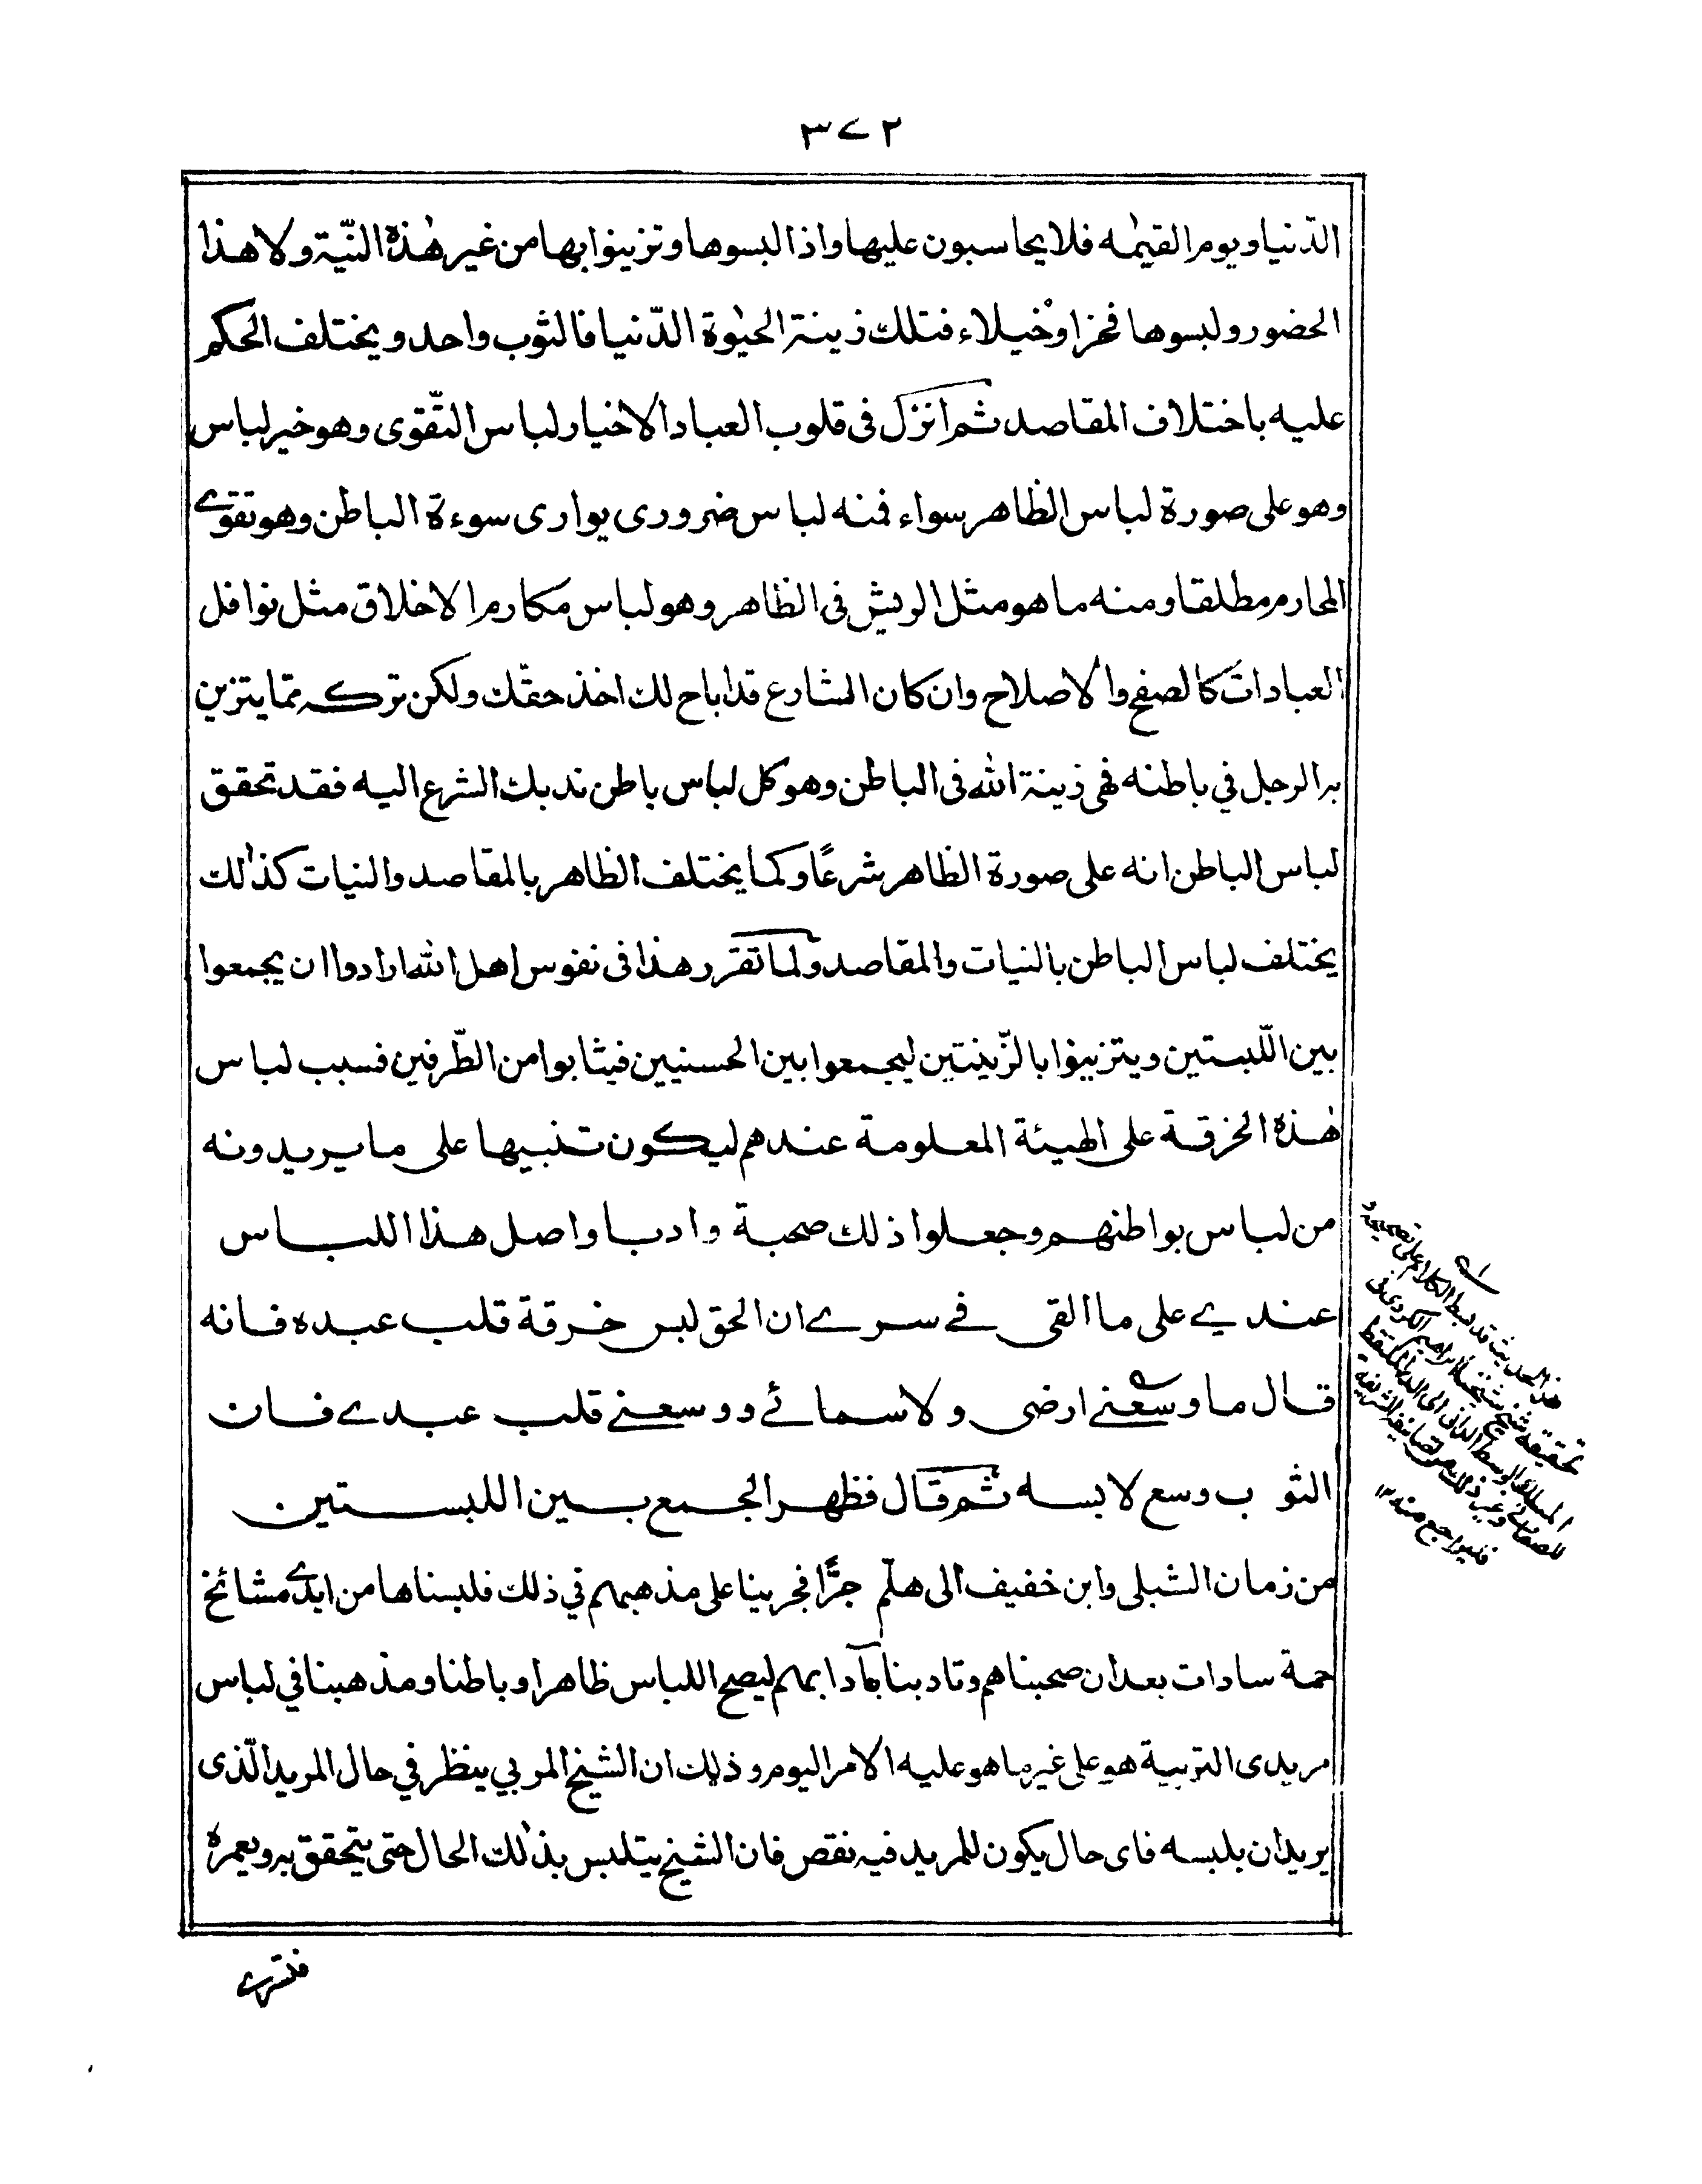 ٣٧٢
الدّنيا ويوم القيٰمه فلا يحاسبون عليها واذا لبسوها وتزينوا بها من غير هٰذه النّيّة ولا هذا
الحضور ولبسوها فخرا وخيلاء فتلك زينة الحيٰوة الدّنيا فالثوب واحد ويختلف الحكم
عليه باختلاف المقاصد ثم انزل فى قلوب العباد الاخيار لباس التّقوى وهو خير لباس
وهو على صورة لباس الظاهر سواء فمنه لباس ضرورى يوارى سوءة الباطن وهو تقوے
المحارم مطلقا ومنه ما هو مثل الريش فى الظاهر وهو لباس مكارم الاخلاق مثل نوافل
العبادات كالصفح والاصلاح وان كان الشارع قد اباح لك اخذ حقّك ولكن تركه ممّا يتزين
به الرجل في باطنه فهى زينة الله فى الباطن وهو كل لباس باطن ندبك الشرع اليه فقد تحقق
لباس الباطن انه على صورة الظاهر شرعًا وكما يختلف الظاهر بالمقاصد والنيات كذٰلك
يختلف لباس الباطن بالنيات والمقاصد ولما تقرر هذا فى نفوس اهل الله ارادوا ان يجمعوا
بين اللّبستين ويتزينوا بالزّينتين ليجمعوا بين الحسنيين فيثابوا من الطّرفين فسبب لباس
هٰذه الخرقة على الهيئة المعلومة عندهم ليكون تنبيها على ما يريدونه
من لباس بواطنهم وجعلوا ذلك صحبة وادبا واصل هذا اللباس
عندي على ما القى فے سرے ان الحق لبس خرقة قلب عبده فانه
قال ما وسعنے ارضى ولا سمائے ووسعنے قلب عبدے فان
الثوب وسع لابسه ثم قال فظهر الجمع بين اللبستين
من زمان الشبلى وابن خفيف الى هلمّ جرًّا فجرينا على مذهبهم في ذلك فلبسناها من ايدے مشائخ
جمة سادات بعد ان صحبناهم وتادبنا بآدابهم ليصح اللباس ظاهرا وباطنا ومذهبنا في لباس
مريدى التربية هو على غير ما هو عليه الامر اليوم وذلك ان الشيخ المربي ينظر في حال المريد الّذى
يريد ان يلبسه فاى حال يكون للمريد فيه نقص فان الشيخ يتلبس بذٰلك الحال حتى يتحقق به ويعمره
هذا الحديث قد بسط الكلام على تصحيحه و
تحقيقه شيخ شيخنا ابراهيم الكردى فى
المسلك الوسط الدانى الى الدر الملتقط
للصغانى وغير ذلك من تصانيفه الشريفة
فليراجع منه ١٢